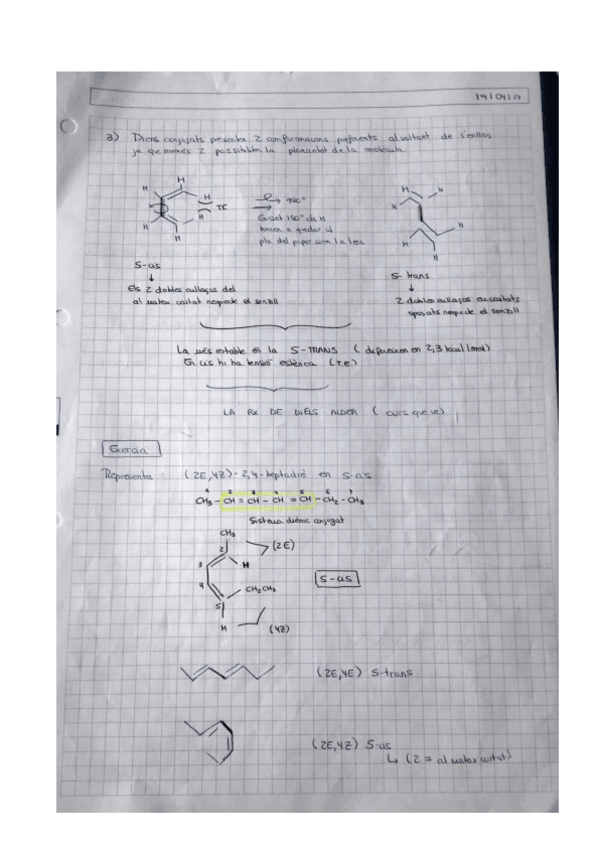 19/04/17
3) Diens conjugats presenten 2 conformacions preferents al voltant de l'enllaç
ja que només 2 possibiliten la planaritat de la molècula
H H H H H H TE
180°
Girant 180° de H
tornen a quedar al
pla del paper com la lea
H H H H H H
S-cis
S-trans
Els 2 dobles enllaços del
al mateix costat respecte el senzill
2 dobles enllaços en costats
oposats respecte el senzill
La més estable en la S-TRANS ( diferencien en 2,3 kcal/mol)
En cis hi ha tensió estèrica (T.E)
LA RX DE DIELS-ALDER ( curs que ve)
Exercici
Representa : (2E,4Z)-2,4-heptadiè en s-cis
1 2 3 4 5 6 7
CH3 - CH = CH - CH = CH - CH2 - CH3
Sistema diènic conjugat
CH3
2 (2E)
3 H
S-cis
4 CH2CH3
5
H (4Z)
(2E,4E) S-trans
(2E,4Z) S-cis
↳ (Z = al mateix costat)